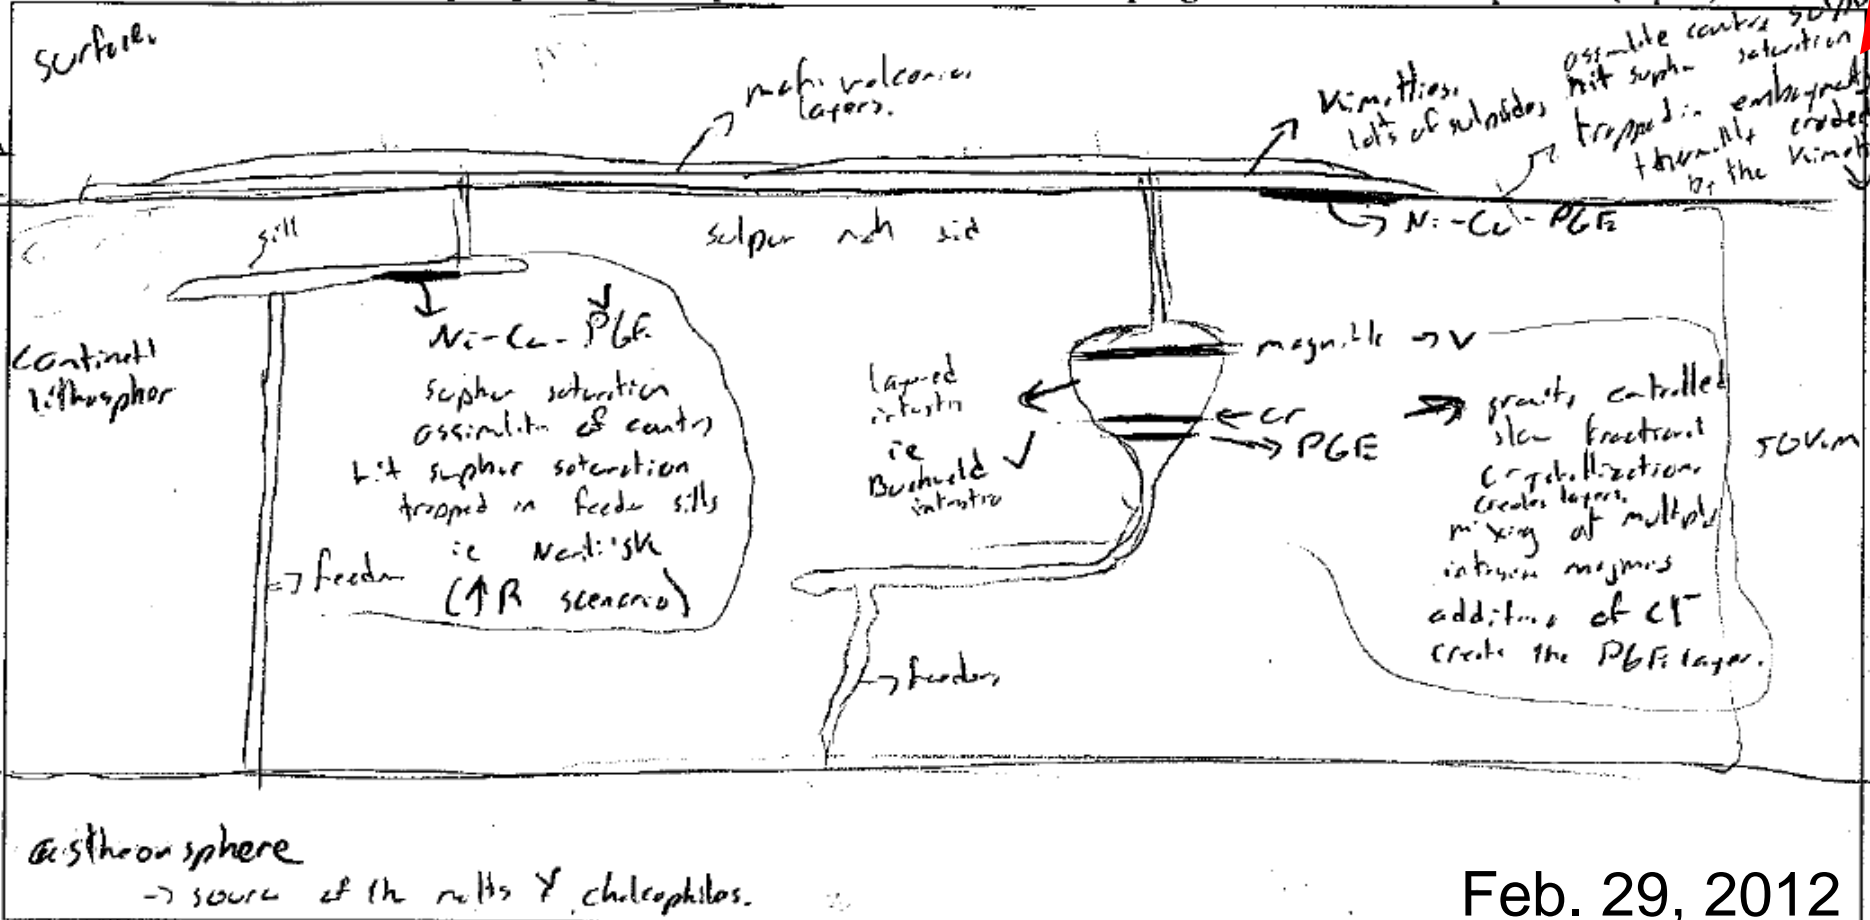 Surface.
mafic volcanic
layers.
lots of sulphides
assimilate country
hit sulphur saturation
trapped in embayments
thermally eroded
by the
Ni-Cu-PGE
sill
sulpur rich sed
Continetl
lithospher
Ni-Cu-PGE
sulphur saturation
assimilatn of country
hit sulphur saturation
trapped in feeder sills
ie
(↑R scenario)
→ feeder
layered
intrustn
ie
Bushveld
intrustio
magnitite → V
← Cr
→ PGE
gravity controlled
slow fractional
crystallization.
creates layers.
mixing of multiple
magmas
addition of Cl⁻
create the PGE layer.
50km
→ feeders
astheonsphere
→ source of the melts & chalcophiles.
Feb. 29, 2012